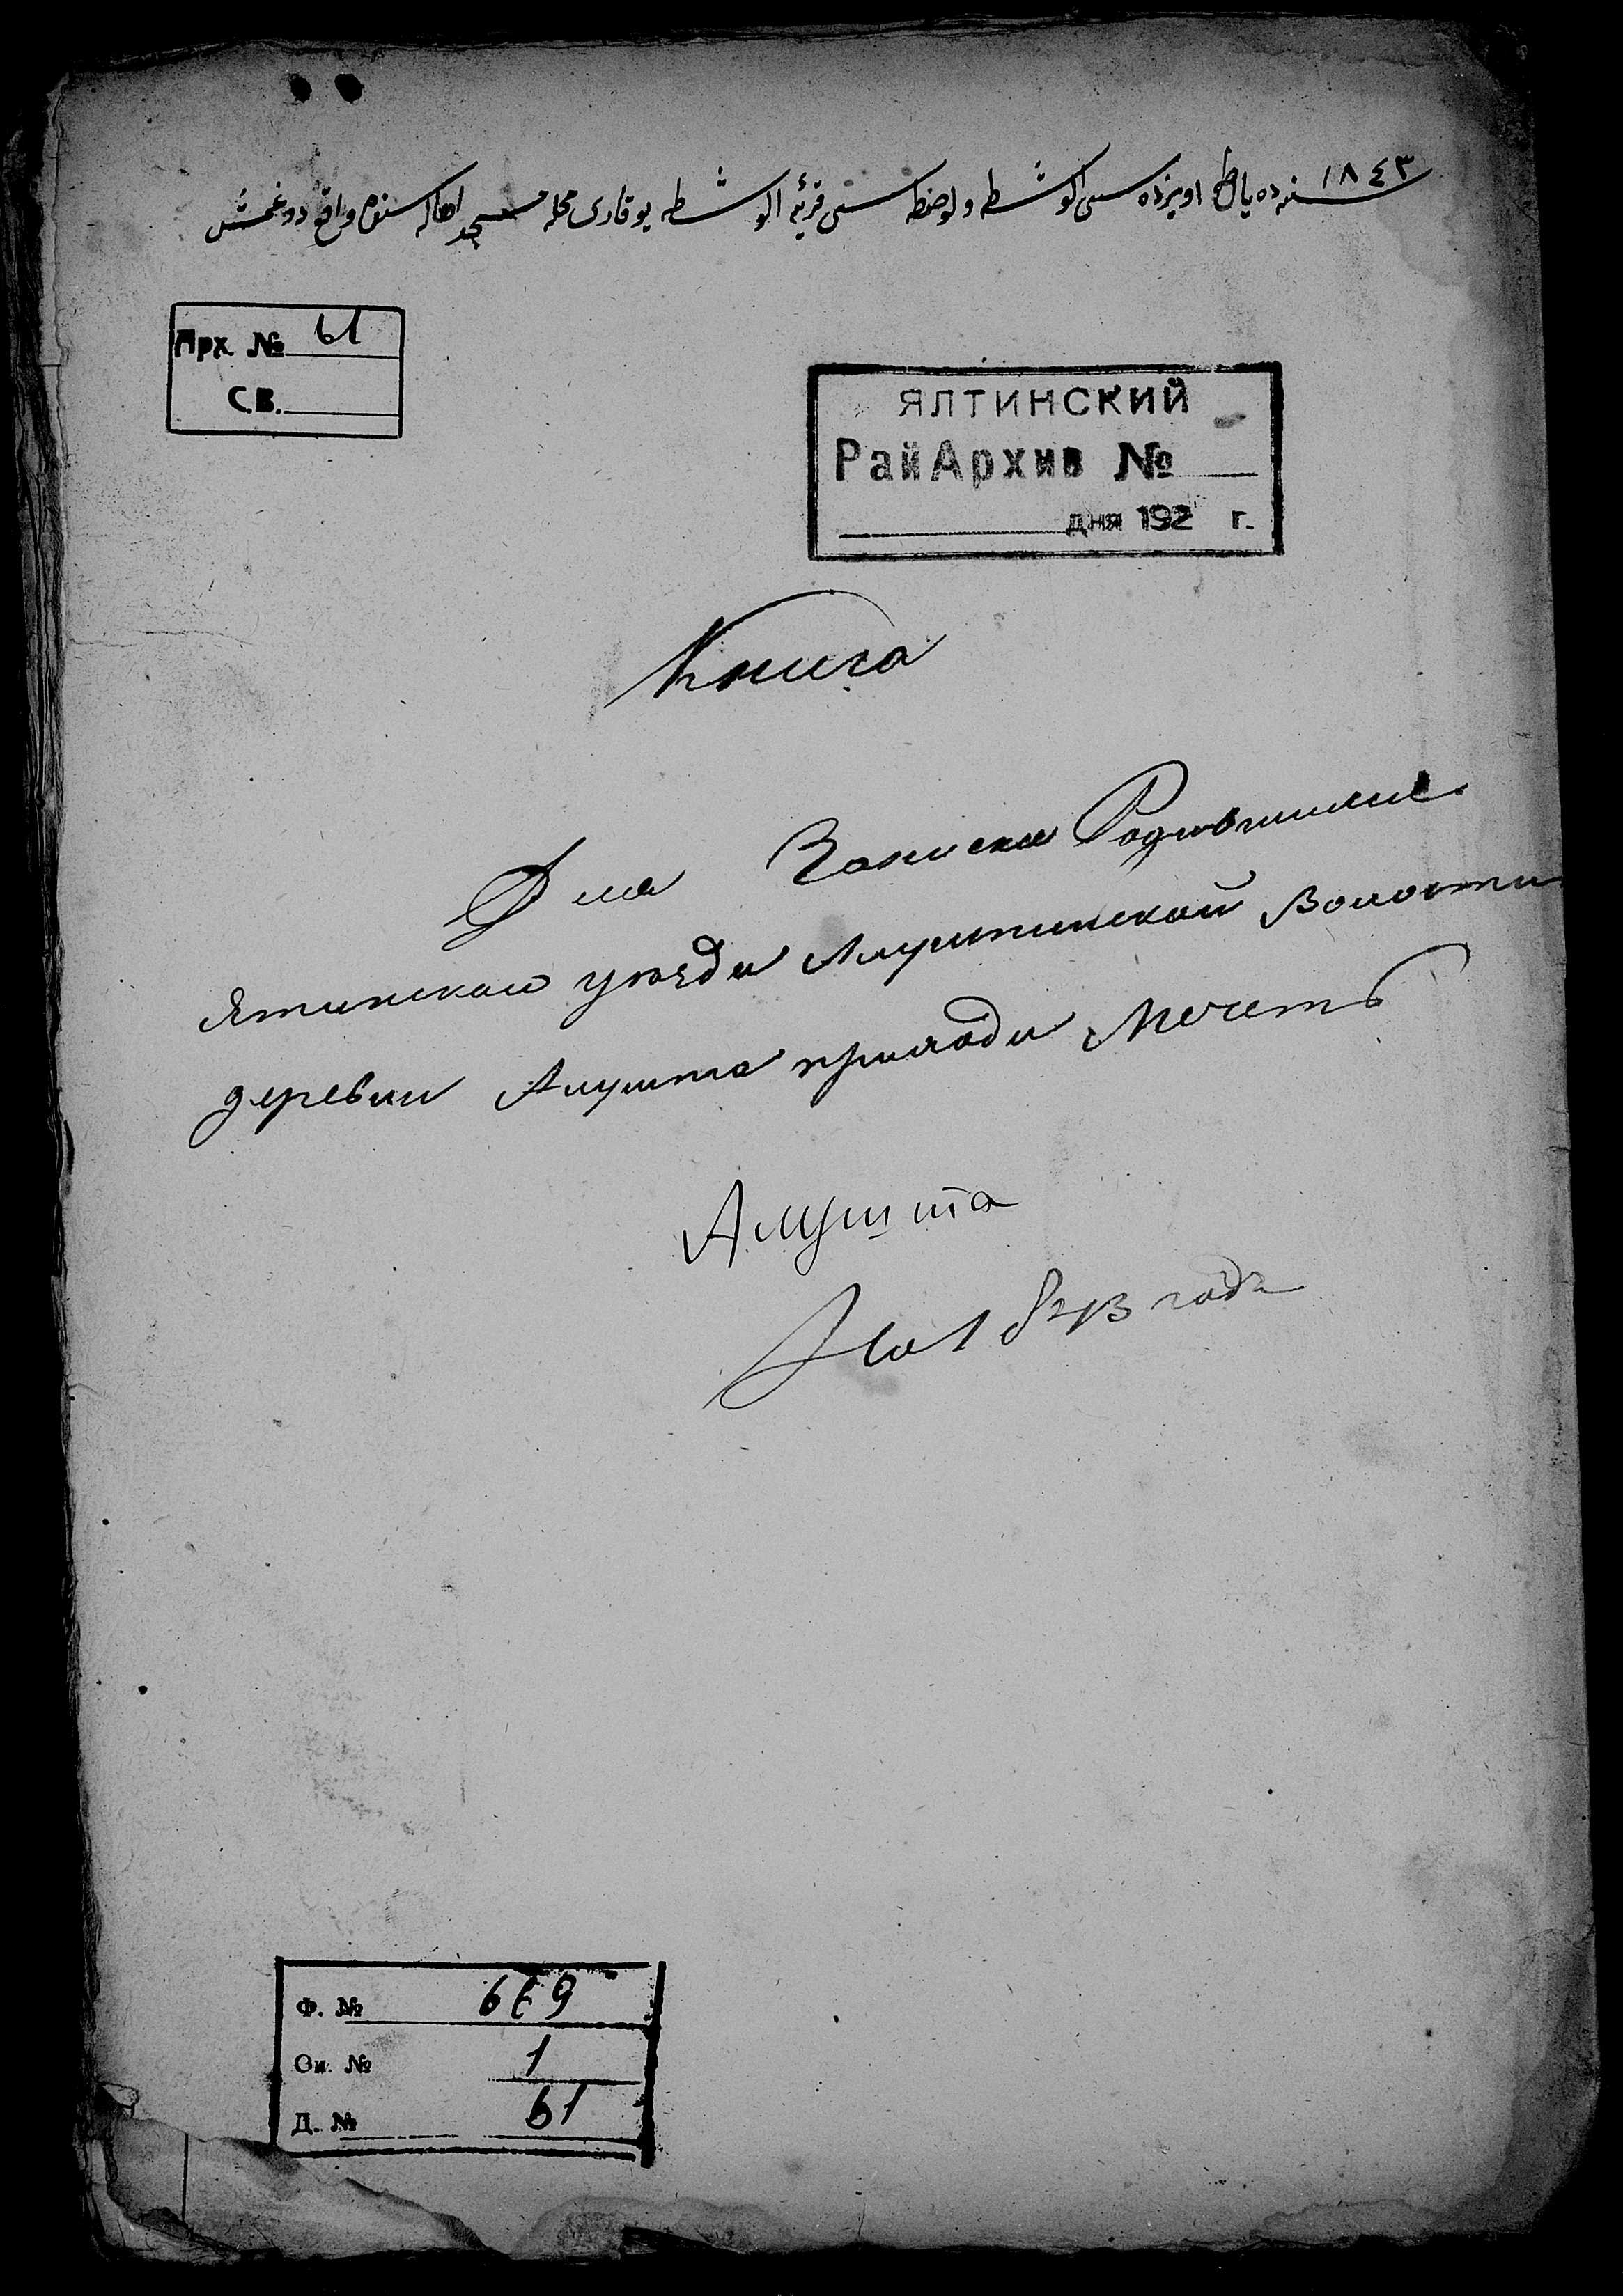 ١٨٤٣ سنه ده يالطه اويزده سى الوشطه ولوصطه سى قريهٔ الوشطه يوقارى محله مسجد واقع دوغمش
Арх. № 61
С.В.
ЯЛТИНСКИЙ
РайАрхив №
дня 192 г.
Книга
Для Записки Родившихся
Ялтинскаго уезда Алуштинской Волости
деревни Алушта прихода Мечеть
Алушта
На 1843 года
Ф. № 669
Оп. № 1
Д. № 61